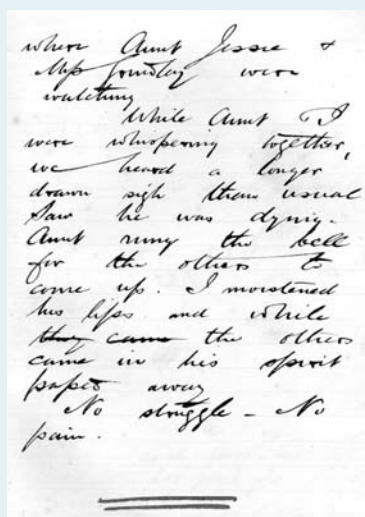 where Aunt Jessie &
Mrs Grindlay were
watching
While Aunt & I
were whispering together,
we heard a longer
drawn sigh than usual
Saw he was dying.
Aunt rung the bell
for the others to
come up. I moistened
his lips and while
they came the others
came in his spirit
passed away
No struggle – No
pain.